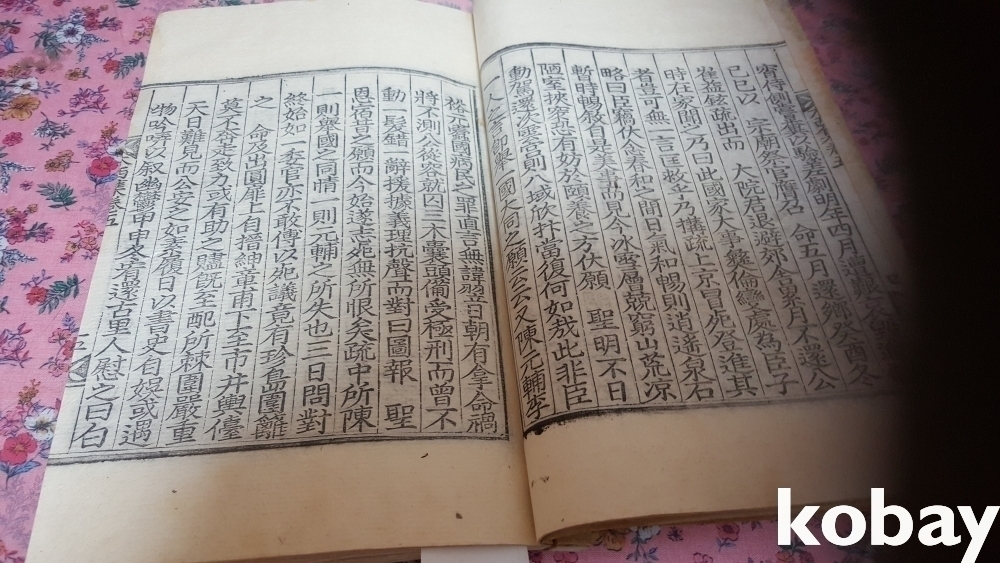 明年四月遭艱
己巳以 宗廟祭官膺召 命五月還鄉癸酉冬
崔益鉉疏出而 大院君退避郊舍累月不還公
時在家聞之乃曰此國家大事繫倫彝處為臣子
者豈可無一言匡救乎乃搆疏上京冒死登進其
略曰臣竊伏念春和之間日氣和暢則逍遙泉石
暫時暢敘自是美事而見今氷雪層兢窮山荒凉
陋室挾窄恐有妨於頤養之方伏願 聖明不日
動駕還次雲宮則八域欣抃當復何如哉此非臣
一人之言即舉一國大同之願云云又陳元輔李
裕元蠹國病民六罪直言無諱翌日朝有拿命禍
將不測公從容就囚三木囊頭備受極刑而曾不
動一髮錯一辭援據義理抗聲而對曰圖報 聖
恩宿昔之願而今始遂志死無所恨矣疏中所陳
一則舉國之同情一則元輔之所失也三日問對
終始如一委官亦不敢傅以死議竟有珍島圍籬
之 命及出圓扉上自搢紳章甫下至市井輿儓
莫不奔走致力或有助之贐旣至配所棘圍嚴重
天日難見而公安之如素履日以書史自娛或遇
物吟哢以叙幽鬱甲申冬宥還古里人慰之曰白
kobay